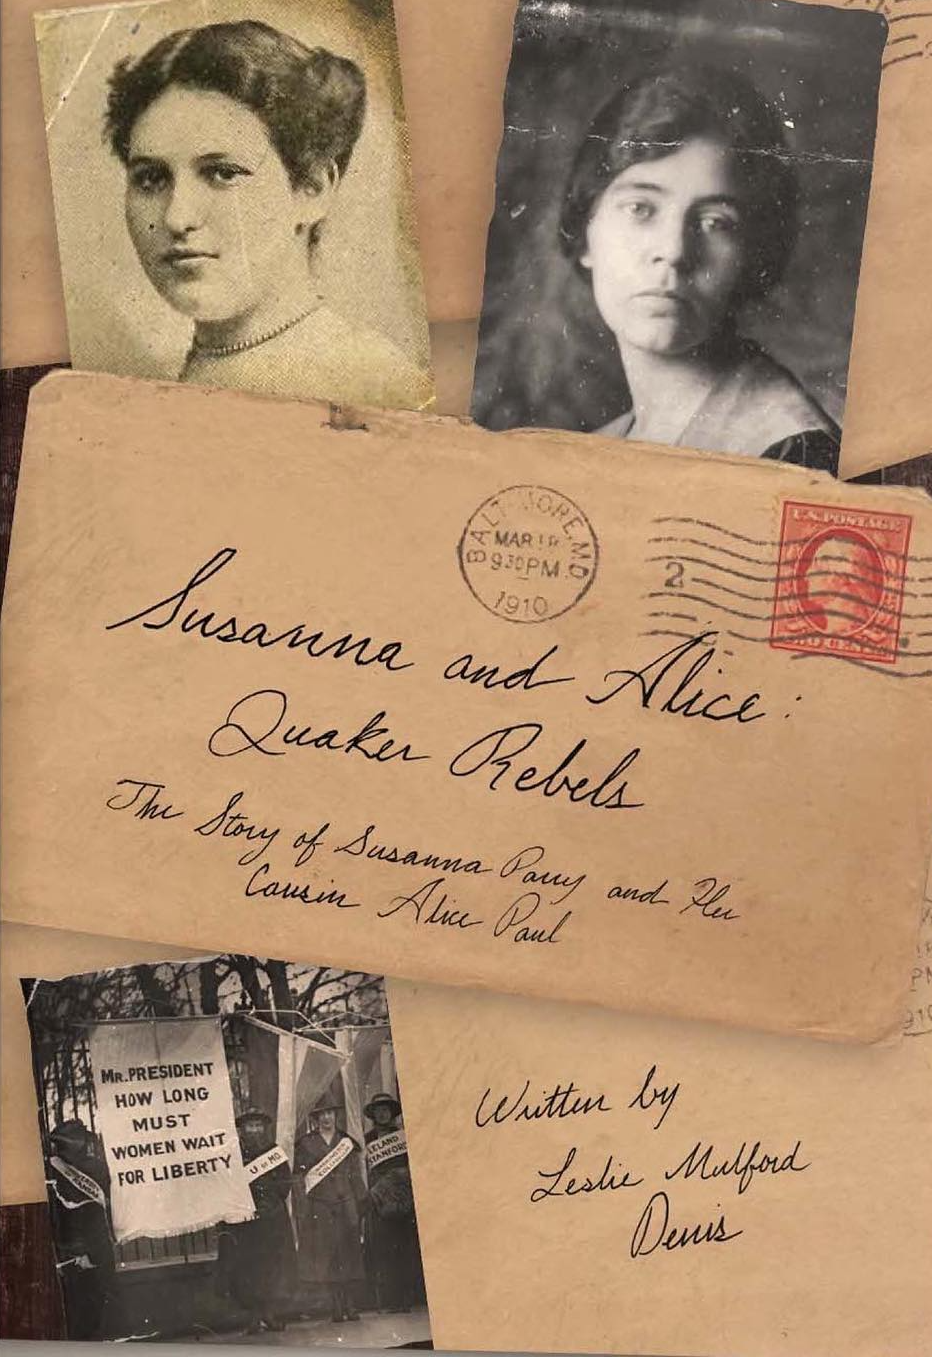 BALTIMORE, MD
MAR 18
930PM
1910
2
U.S. POSTAGE
Susanna and Alice:
Quaker Rebels
The Story of Susanna Parry and Her
Cousin Alice Paul
MR. PRESIDENT
HOW LONG
MUST
WOMEN WAIT
FOR LIBERTY
U OF MO.
LELAND
STANFORD
Written by
Leslie Mulford
Denis